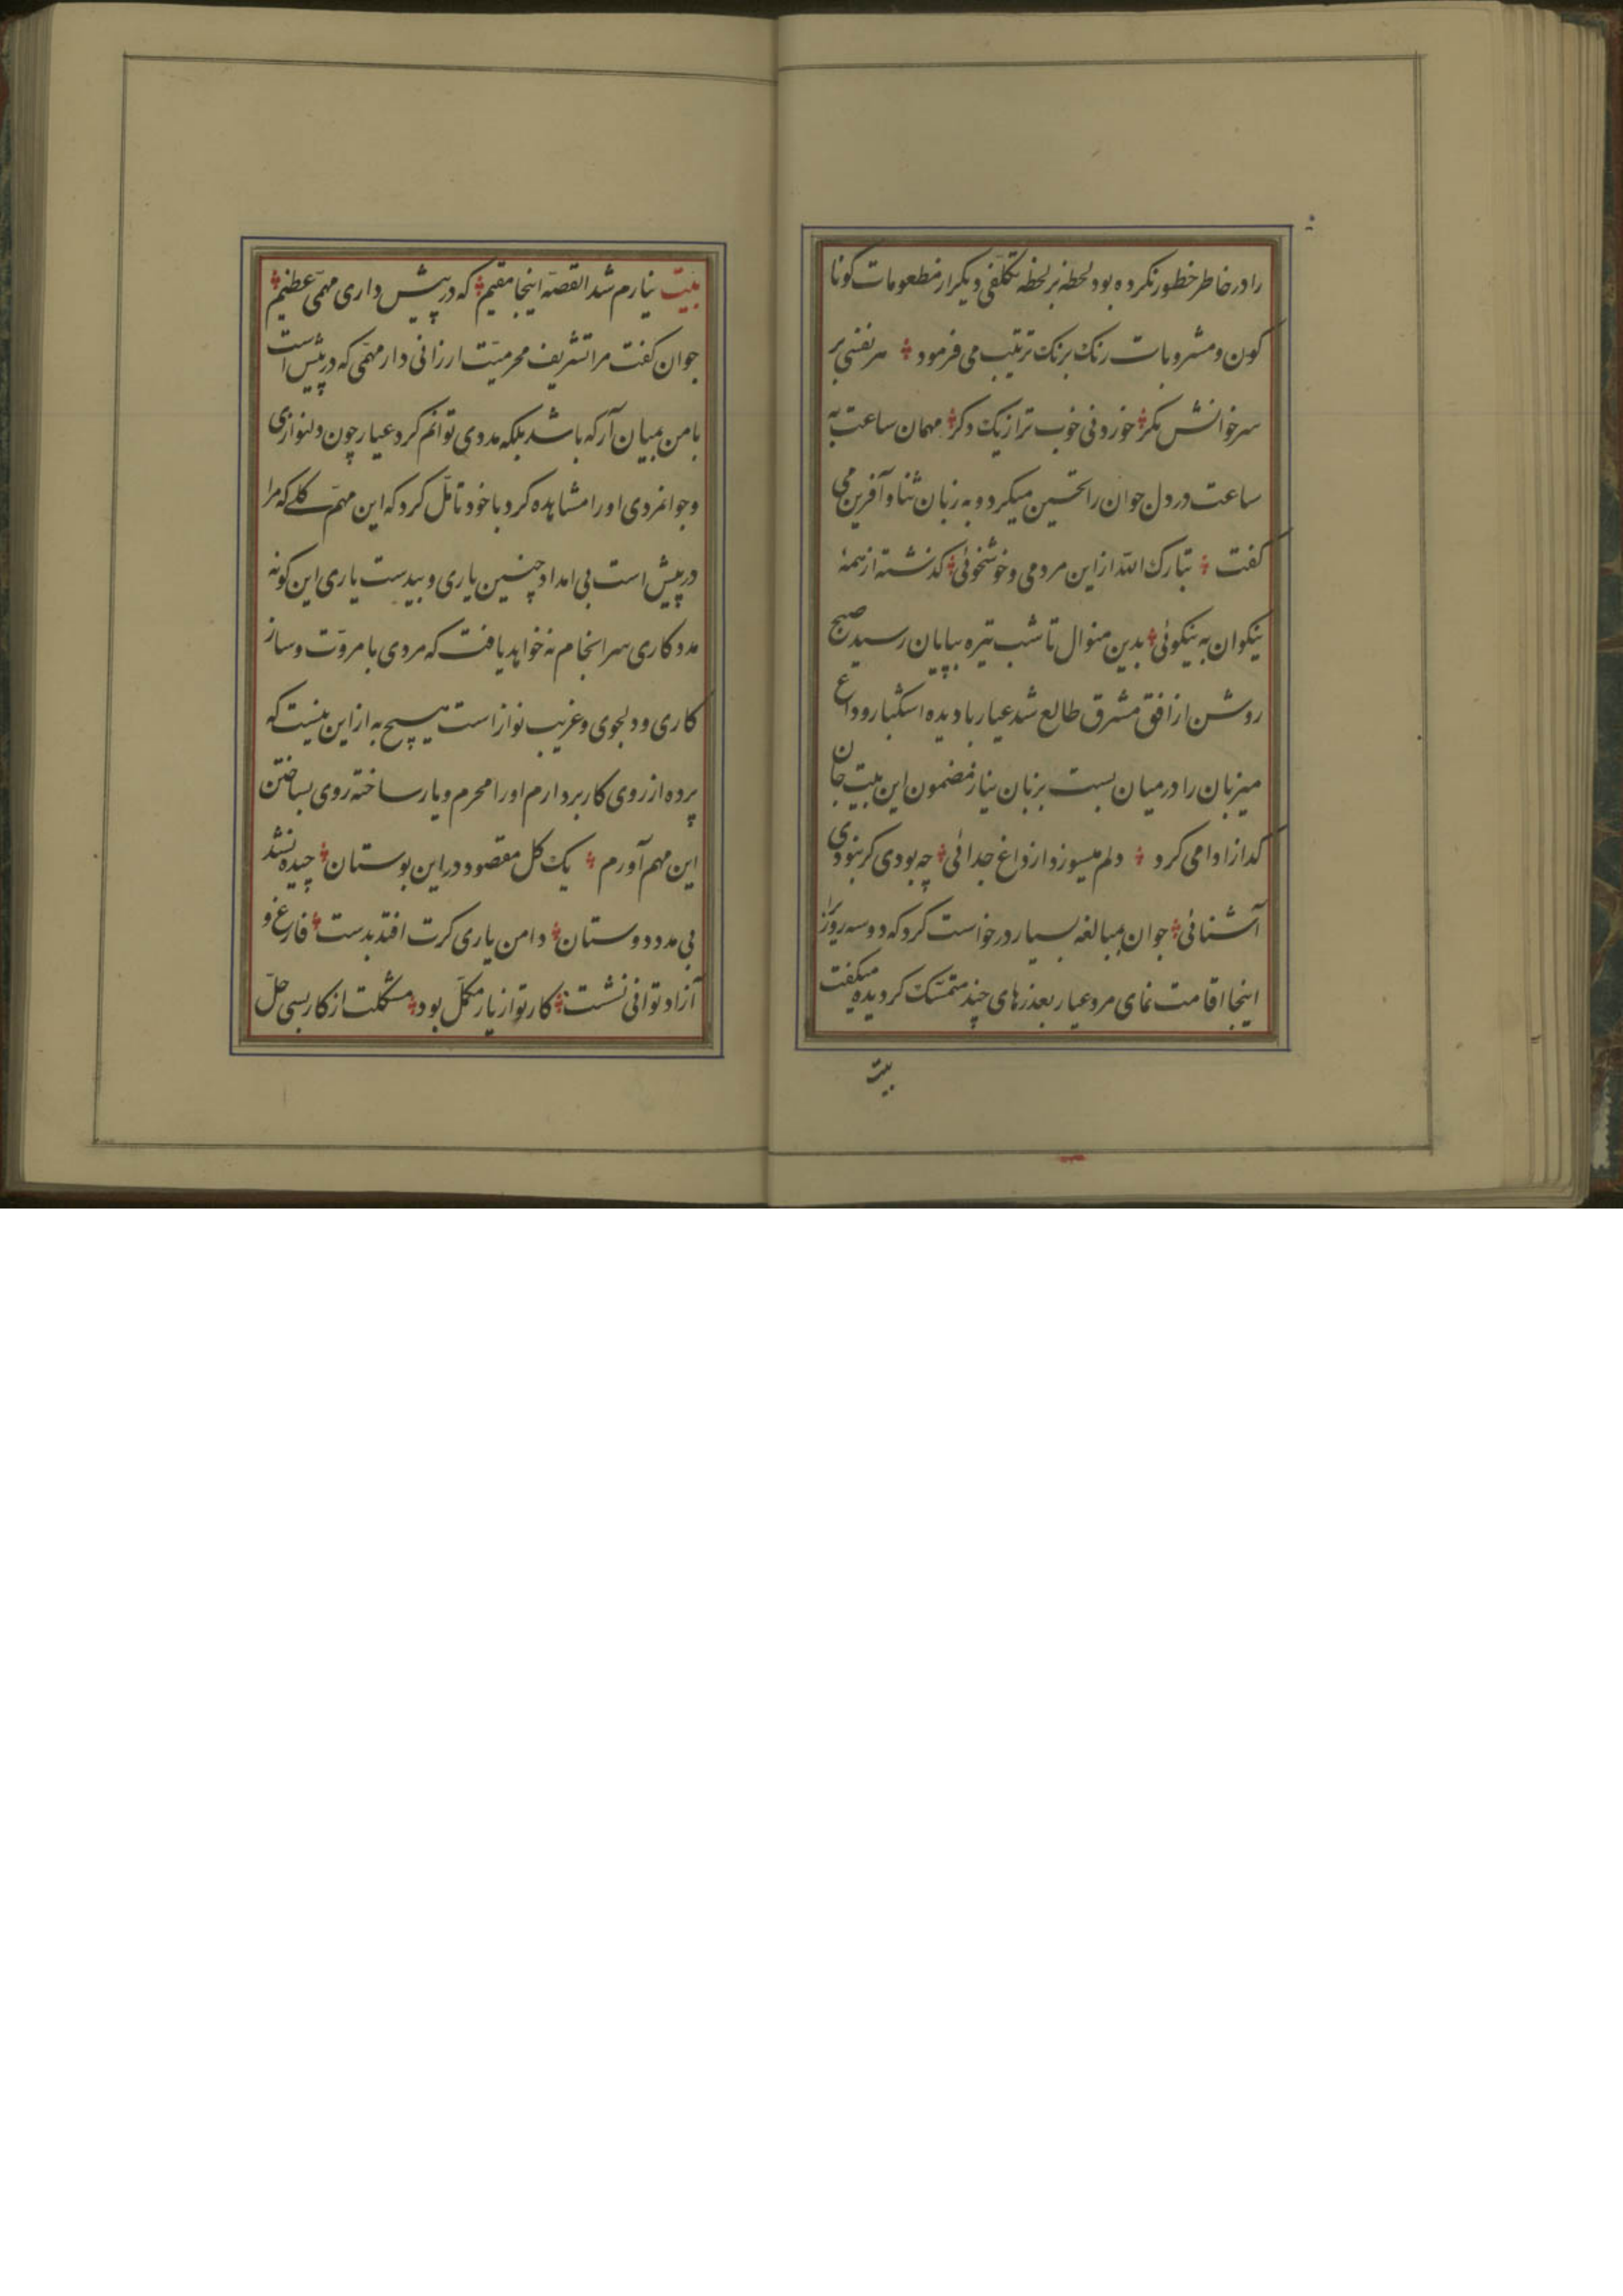 را در خاطر خطور نکرده بود لحظه بر لحظه تکلفی دیگر از مطعومات کونا
کون و مشروبات رنک برنک ترتیب می فرمود هر نفسی بر
سر خوانش مکر خوردنی خوب تر از یک دکر مهمان ساعت به
ساعت در دل جوان را تحسین میکرد و به زبان ثنا و آفرین می
کفت تبارک الله از این مردمی و خوشخوئی کذشته از همهٔ
نیکوان به نیکوئی بدین منوال تا شب تیره بپایان رسید صبح
روشن از افق مشرق طالع شد عیار با دیده اشکبار وداع
میزبان را در میان بست بزبان نیاز مضمون این بیت جان
کداز ادا می کرد دلم میسوزد از داغ جدائی چه بودی کر نبودی
آشنائی جوان مبالغه بسیار درخواست کرد که دو سه روز
اینجا اقامت نمای مرد عیار بعذرهای چند متمسک کردیده میکفت
بیت
بیت نیارم شد القصّه اینجا مقیم که در پیش داری مهمّی عظیم
جوان کفت مرا تشریف محرمیّت ارزانی دار مهمّی که در پیش است
با من بمیان آر که باشد بلکه مددی توانم کرد عیار چون دلنوازی
و جوانمردی او را مشاهده کرد با خود تامّل کرد که این مهمّ کلے که مرا
در پیش است بی امداد چنین یاری و بیدست یاری این کونه
مدد کاری سرانجام نه خواهد یافت که مردی با مروّت و ساز
کاری و دلجوی و غریب نواز است هیچ به از این نیست که
پرده از روی کار بردارم او را محرم و یار ساخته روی بساختن
این مهم آورم یک کل مقصود در این بوستان چیده نشد
بی مدد دوستان دامن یاری کرت افتد بدست فارغ و
آزاد توانی نشست کار تو از یار مکمّل بود مشکلت از کار بسی حلّ